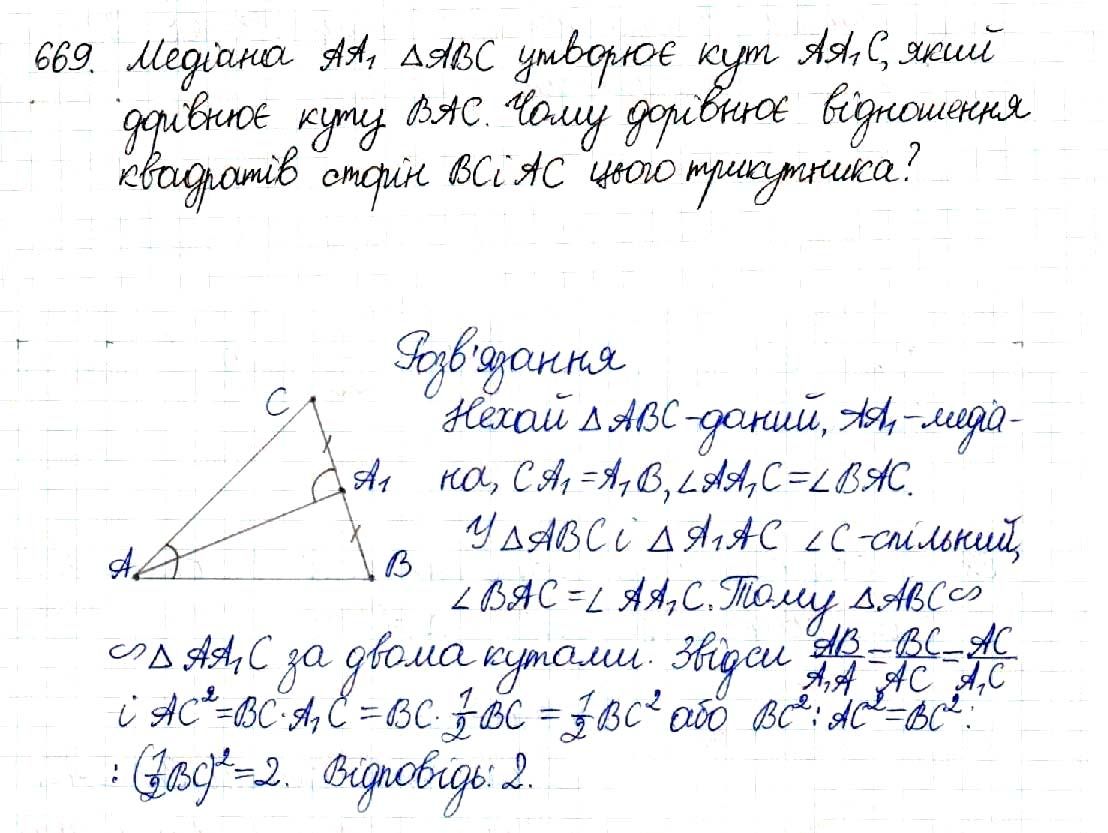 669. Медіана AA₁ △ABC утворює кут AA₁C, який
дорівнює куту BAC. Чому дорівнює відношення
квадратів сторін BC і AC цього трикутника?
Розв'язання
C
A₁
A
B
Нехай △ABC - даний, AA₁ - медіа-
на, CA₁ = A₁B, ∠AA₁C = ∠BAC.
У △ABC і △A₁AC ∠C - спільний,
∠BAC = ∠AA₁C. Тому △ABC ∽
∽ △AA₁C за двома кутами. Звідси AB/A₁A = BC/AC = AC/A₁C
і AC² = BC · A₁C = BC · 1/2 BC = 1/2 BC² або BC² : AC² = BC² :
: (1/2 BC)² = 2. Відповідь: 2.